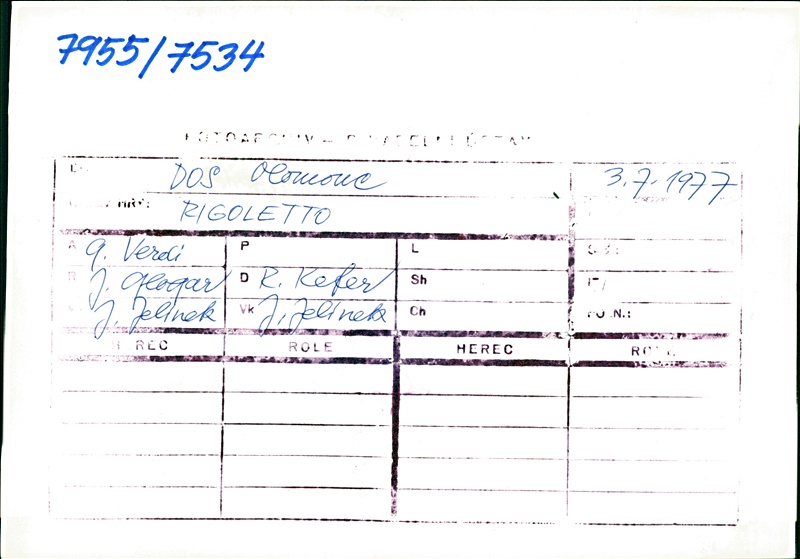 7955/7534
DOS Olomouc 3.7.1977
RIGOLETTO
A G. Verdi P L
R J. Glogar D R. Kefer Sh
J. Jelínek Vk J. Jelínek Ch
HEREC ROLE HEREC ROLE